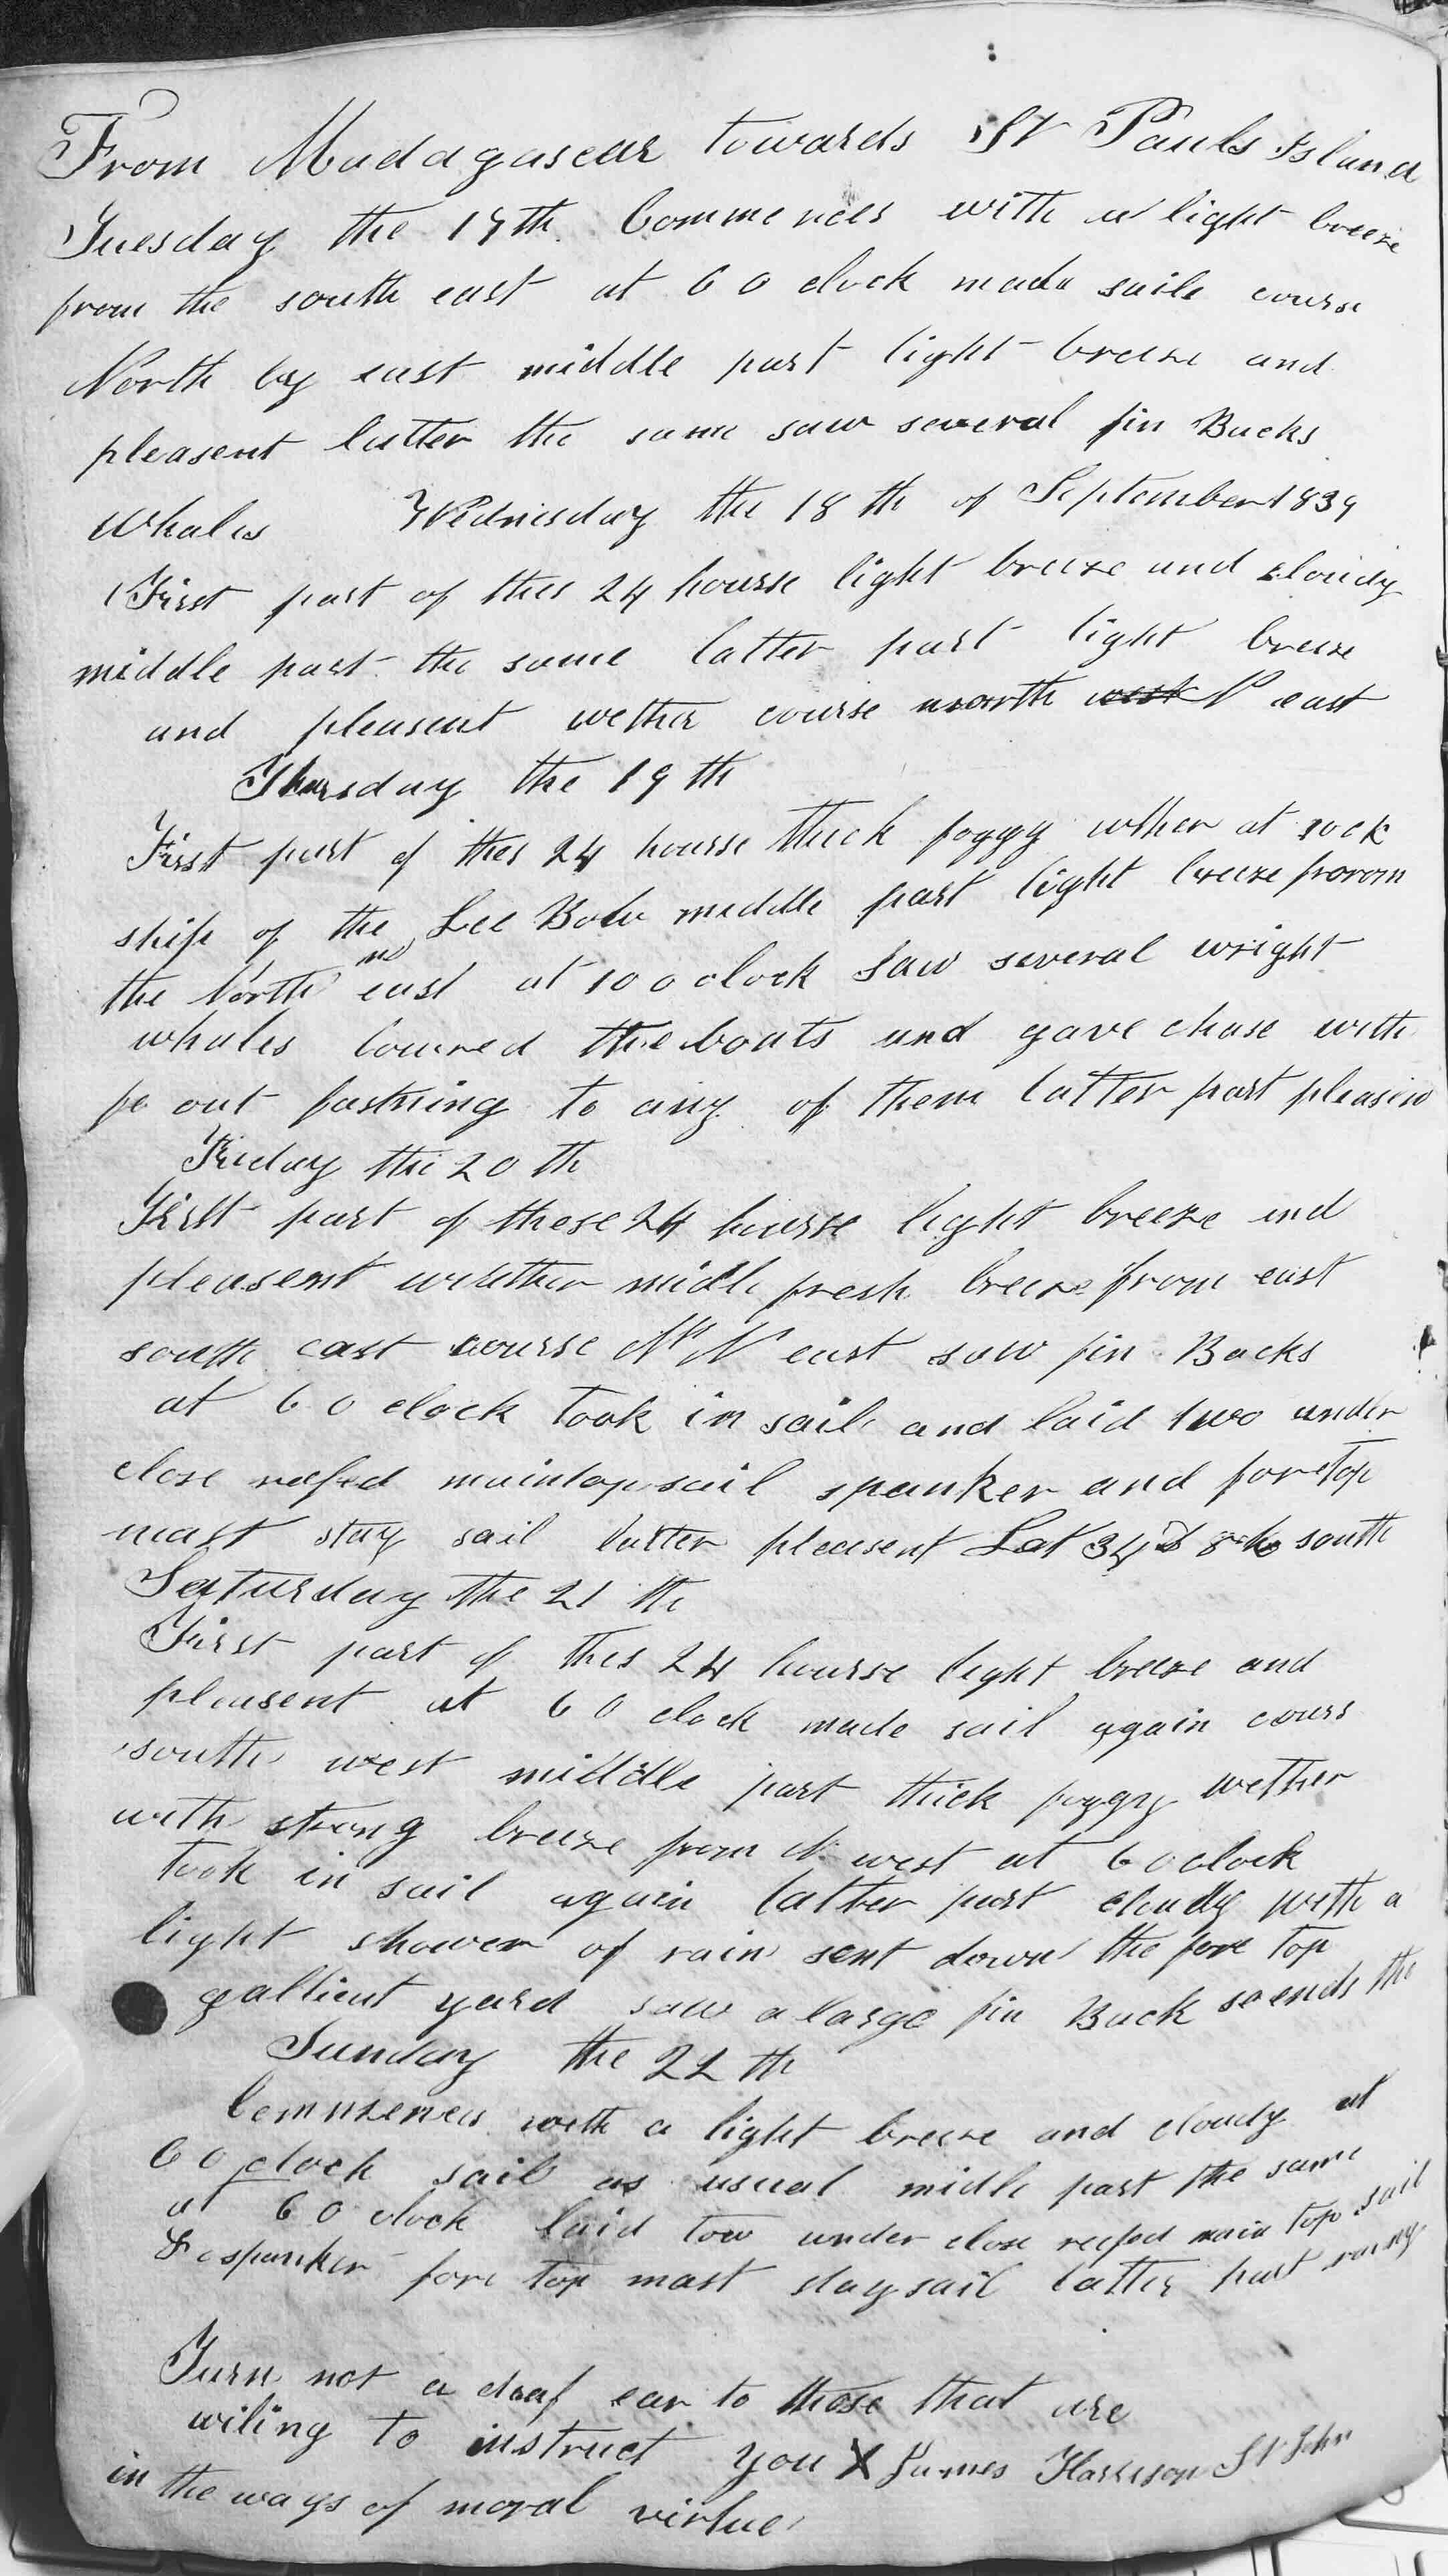 From Madagascar towards St Pauls Island
Tuesday the 17th Commences with a light breeze
from the south east at 6 o clock made saile course
North by east middle part light breeze and
pleasent latter the same saw several fin Backs
Whales Wednesday the 18 th of September 1839
First part of thes 24 hourse light breeze and cloudy
middle part the same latter part light breeze
and pleasent wether course north west N east
Thursday the 19 th
First part of thes 24 hourse thick foggy wther at
ship of the Lee Bow meddle part light breeze from
the North east at 10 o clock saw several wright
whales lowred the boats and gave chase with
out fastning to any of them latter part pleasen
Friday the 20 th
First part of these 24 hourse light breeze and
pleasent whether midle fresh breeze from east
south east course N N east saw fin Backs
at 6 o clock took in sail and laid two under
close reefed maintopsail spanker and foretop
mast stay sail latter pleasent Lat 34 south
Saturday the 21 th
First part of thes 24 hourse light breeze and
pleasent at 6 o clock made sail again cours
south west middle part thick foggy wether
with strong breeze from N west at 6 o clock
took in sail again latter part cloudy with a
light shower of rain sent down the fore top
gallient yard saw a large fin Back so ends the
Sunday the 22 th
Commences with a light breeze and cloudy at
6 o clock sail as usual midle part the same
at 6 o clock laid tow under close reefed main top sail
spanker fore top mast staysail latter part
Turn not a deaf ear to those that are
wiling to instruct you X James Harrison St John
in the ways of moral virtue